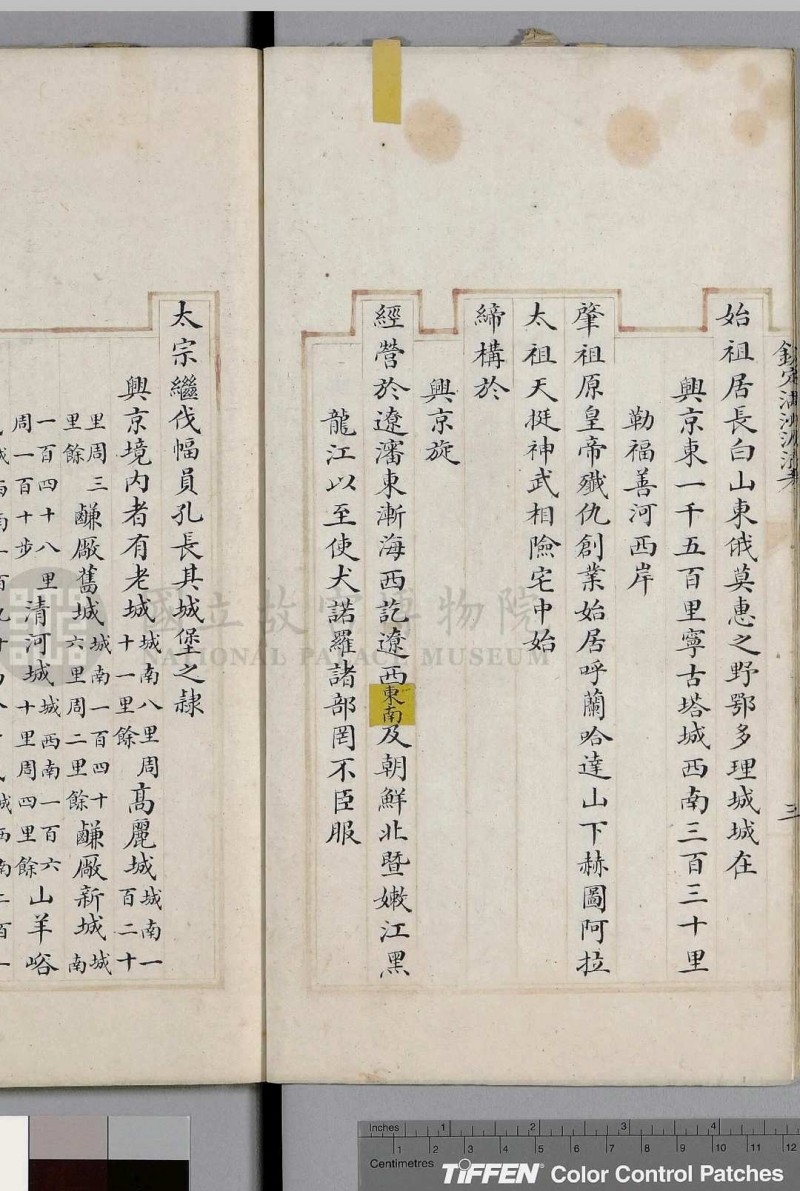 欽定滿洲源流考
三
始祖居長白山東俄莫惠之野鄂多理城城在
興京東一千五百里寧古塔城西南三百三十里
勒福善河西岸
肇祖原皇帝殲仇創業始居呼蘭哈達山下赫圖阿拉
太祖天挺神武相險宅中始
締構於
興京旋
經營於遼瀋東漸海西訖遼西東南及朝鮮北暨嫩江黑
龍江以至使犬諾羅諸部罔不臣服
太宗繼伐幅員孔長其城堡之隷
興京境内者有老城城南八里周十一里餘高麗城城南一百二十
里周三里餘鹻厰舊城城南一百四十六里周二里餘鹻厰新城城南
一百四十八里周一百十步清河城城西南一百六十里周四里餘山羊峪
國立故宮博物院
NATIONAL PALACE MUSEUM
Inches 1 2 3 4
Centimetres 1 2 3 4 5 6 7 8 9 10 11 12
TIFFEN Color Control Patches